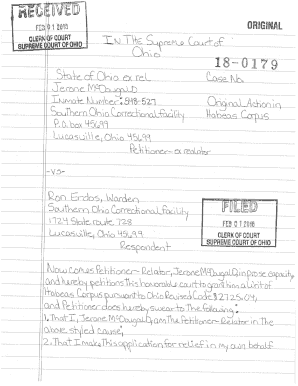 RECEIVED
FEB 01 2018
CLERK OF COURT
SUPREME COURT OF OHIO
ORIGINAL
In The Supreme Court of
Ohio
18-0179
State of Ohio ex rel
Case No.
Jerone McDougald
Inmate Number: 548-527
Original Action in
Southern Ohio Correctional facility
Habeas Corpus
P.O. box 45699
Lucasville, Ohio 45699
Petitioner-ex relator
-vs-
Ron Erdos, Warden
Southern Ohio Correctional facility
1724 State route 728
Lucasville, Ohio 45699
Respondent
FILED
FEB 01 2018
CLERK OF COURT
SUPREME COURT OF OHIO
Now comes Petitioner-Relator, Jerone McDougald, in pro se capacity
and hereby petitions this honorable court to grant him a Writ of
Habeas Corpus pursuant to Ohio Revised Code § 2725.04,
and Petitioner does hereby swear to The following:
1. That I, Jerone McDougald, am The Petitioner-Relator in The
above styled cause;
2. That I make This application for relief in my own behalf